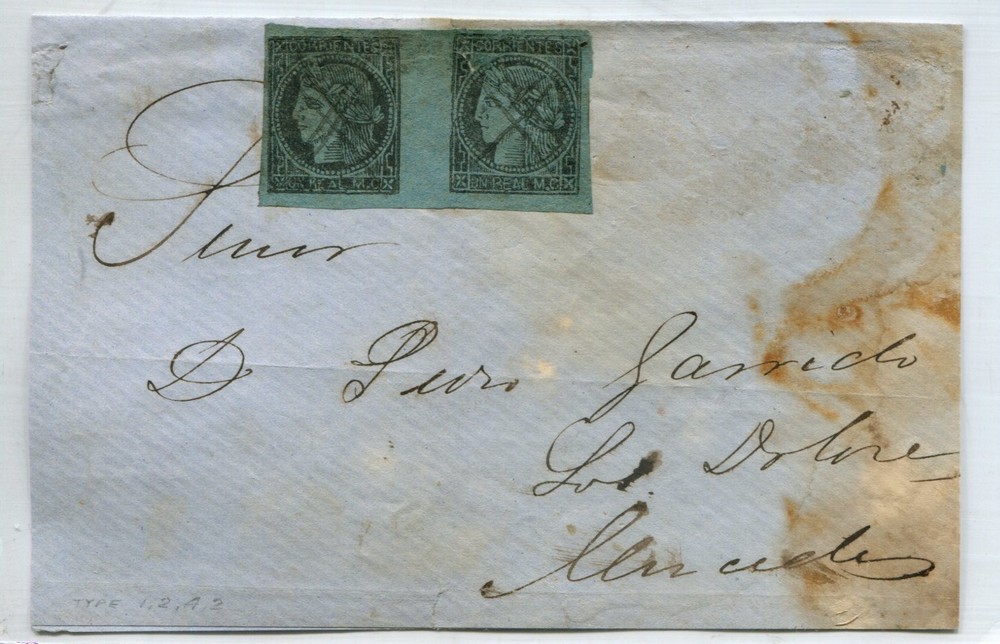 CORRIENTES CORRIENTES
UN REAL M.C. UN REAL M.C.
Señor
D Pedro Garrido
Los Dolore
Mercedes
TYPE 1, 2, 4, 2